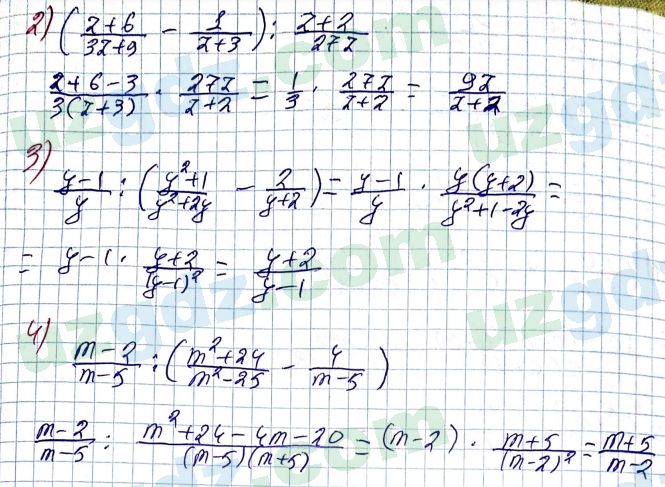 2) ( (z+6)/(3z+9) - 1/(z+3) ) : (z+2)/(27z)
(z+6-3)/(3(z+3)) · (27z)/(z+2) = 1/3 · (27z)/(z+2) = (9z)/(z+2)
3) (y-1)/y : ( (y²+1)/(y²+2y) - 2/(y+2) ) = (y-1)/y · (y(y+2))/(y²+1-2y) =
= y-1 · (y+2)/(y-1)² = (y+2)/(y-1)
4) (m-2)/(m-5) : ( (m²+24)/(m²-25) - 4/(m-5) )
(m-2)/(m-5) : (m²+24-4m-20)/((m-5)(m+5)) = (m-2) · (m+5)/(m-2)² = (m+5)/(m-2)
uzgdz.com